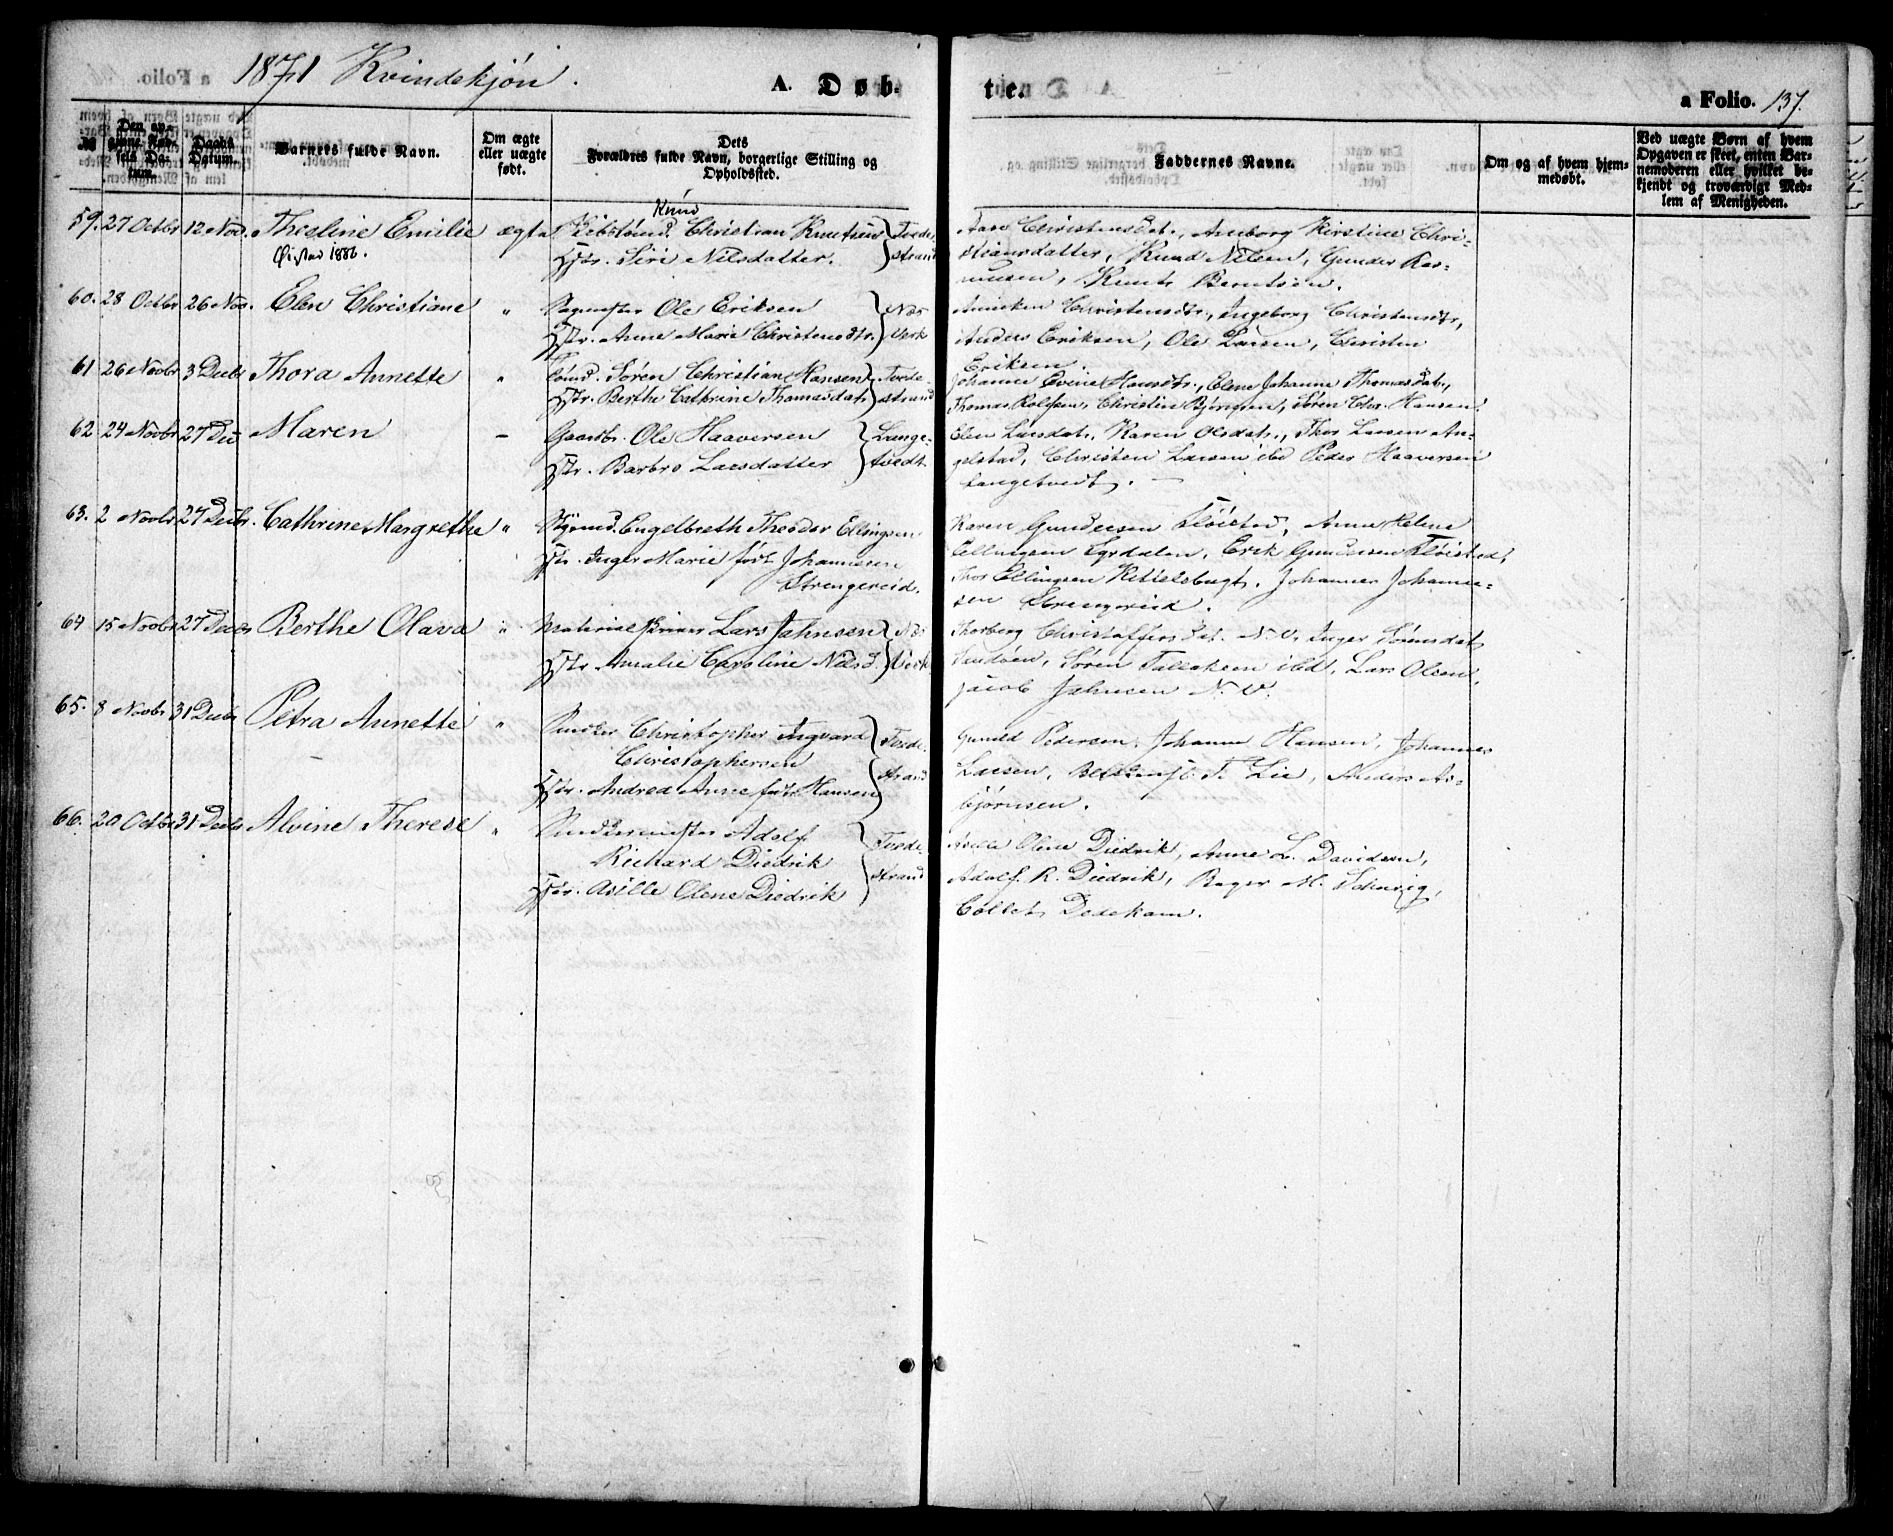 1871 Kvindekjön.
A. Døb-
te.
a Folio. 137.
Den ove
Daabs
Datum.
Barnets fulde Navn.
Om ægte
eller uægte
født.
Dets
Forældres fulde Navn, borgerlige Stilling og
Opholdssted.
Faddernes Navne.
Om og af hvem hjem-
medøbt.
Ved uægte Børn af hvem
Opgaven er skeet, enten Bar-
nemoderen eller hvilket be-
kjendt og troværdigt Med-
lem af Menigheden.
59. 27 Octbr 12 Nov. Thoeline Emilie ægte Knud Christian Knutsen Tvede-
1886. Htr. Siri Nilsdatter. strand
Christensdat., Anborg Kirstine Chri-
stiansdatter, Knud Nilsen, Gunder Ras-
musen, Knut Berntsen.
60. 28 Octbr 26 Nov. Elen Christiane " Ole Eriksen Næs
Htr. Anne Marie Christensdtr. Verk
Anniken Christensdtr., Ingeborg Christensdtr,
Anders Eriksen, Ole Larsen, Christen
Eriksen.
61 26 Novbr 3 Decbr Thora Annette " Tömd. Sören Christian Hansen Tvede-
Htr. Berthe Cathrine Thomasdat. strand
Johanne Evine Hansdtr., Elene Johanne Thomasdat.,
Thomas Rolfsen, Christen Bjørnsen, Søren Chr. Hansen.
62 24 Novbr 27 Dec Maren - Gaardbr. Ole Haaversen Lange-
Htr. Barbro Larsdatter tvedt.
Elen Larsdat., Karen Olsdat., Thor Larsen An-
gelstad, Christen Larsen ibd Peder Haaversen
Langetvedt.
63. 2 Novbr 27 Decbr. Cathrine Margrethe " Engelbreth Theodor Ellingsen
Htr. Inger Marie født Johannesen
Strengereid.
Karen Gundersen Fløistad, Anne Helene
Ellingsen Lyrdalen, Erik Gundersen Fløistad,
Thor Ellingsen Kittelsbugt. Johannes Johanne-
sen Strengereid.
64 15 Novbr 27 Decbr Berthe Olava " Lars Jahnsen Næs
Htr. Amalie Caroline Nilsd. Verk
Thorborg Christoffersdat. N.V. Inger Sørensdat
Sandøen, Søren Tallaksen ibd, Lars Olsen,
Jacob Jahnsen N.V.
65. 8 Novbr 31 Decbr Petra Annette " Snedker Christopher Ingvard Tvede-
Christophersen
Htr. Andrea Anne født Hansen strand
Gunild Pedersen, Johanne Hansen, Johannes
Larsen, T. Lie, Anders As-
bjørnsen.
66. 20 Octbr 31 Decbr Alvine Therese " Adolf Tvede-
Richard Diedrik
Htr. Asille Olene Diedrik strand
Asille Olene Diedrik, Anne L. Davidsen,
Adolf R. Diedrik, Bager M. Schurig,
Collet Dedekam.